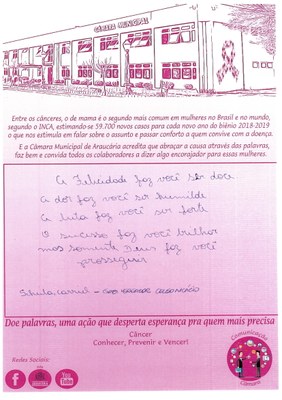 CÂMARA MUNICIPAL
Entre os cânceres, o de mama é o segundo mais comum em mulheres no Brasil e no mundo,
segundo o INCA, estimando-se 59.700 novos casos para cada novo ano do biênio 2018-2019
o que nos estimula em falar sobre o assunto e passar conforto a quem convive com a doença.
E a Câmara Municipal de Araucária acredita que abraçar a causa através das palavras,
faz bem e convida todos os colaboradores a dizer algo encorajador para essas mulheres.
A Felicidade faz você ser doce
A dor faz você ser humilde
A luta faz você ser forte
O sucesso faz você brilhar
mas somente Deus faz você
prosseguir
Doe palavras, uma ação que desperta esperança pra quem mais precisa
Câncer
Conhecer, Prevenir e Vencer!
Redes Sociais:
You
Tube
Comunicação
Câmara